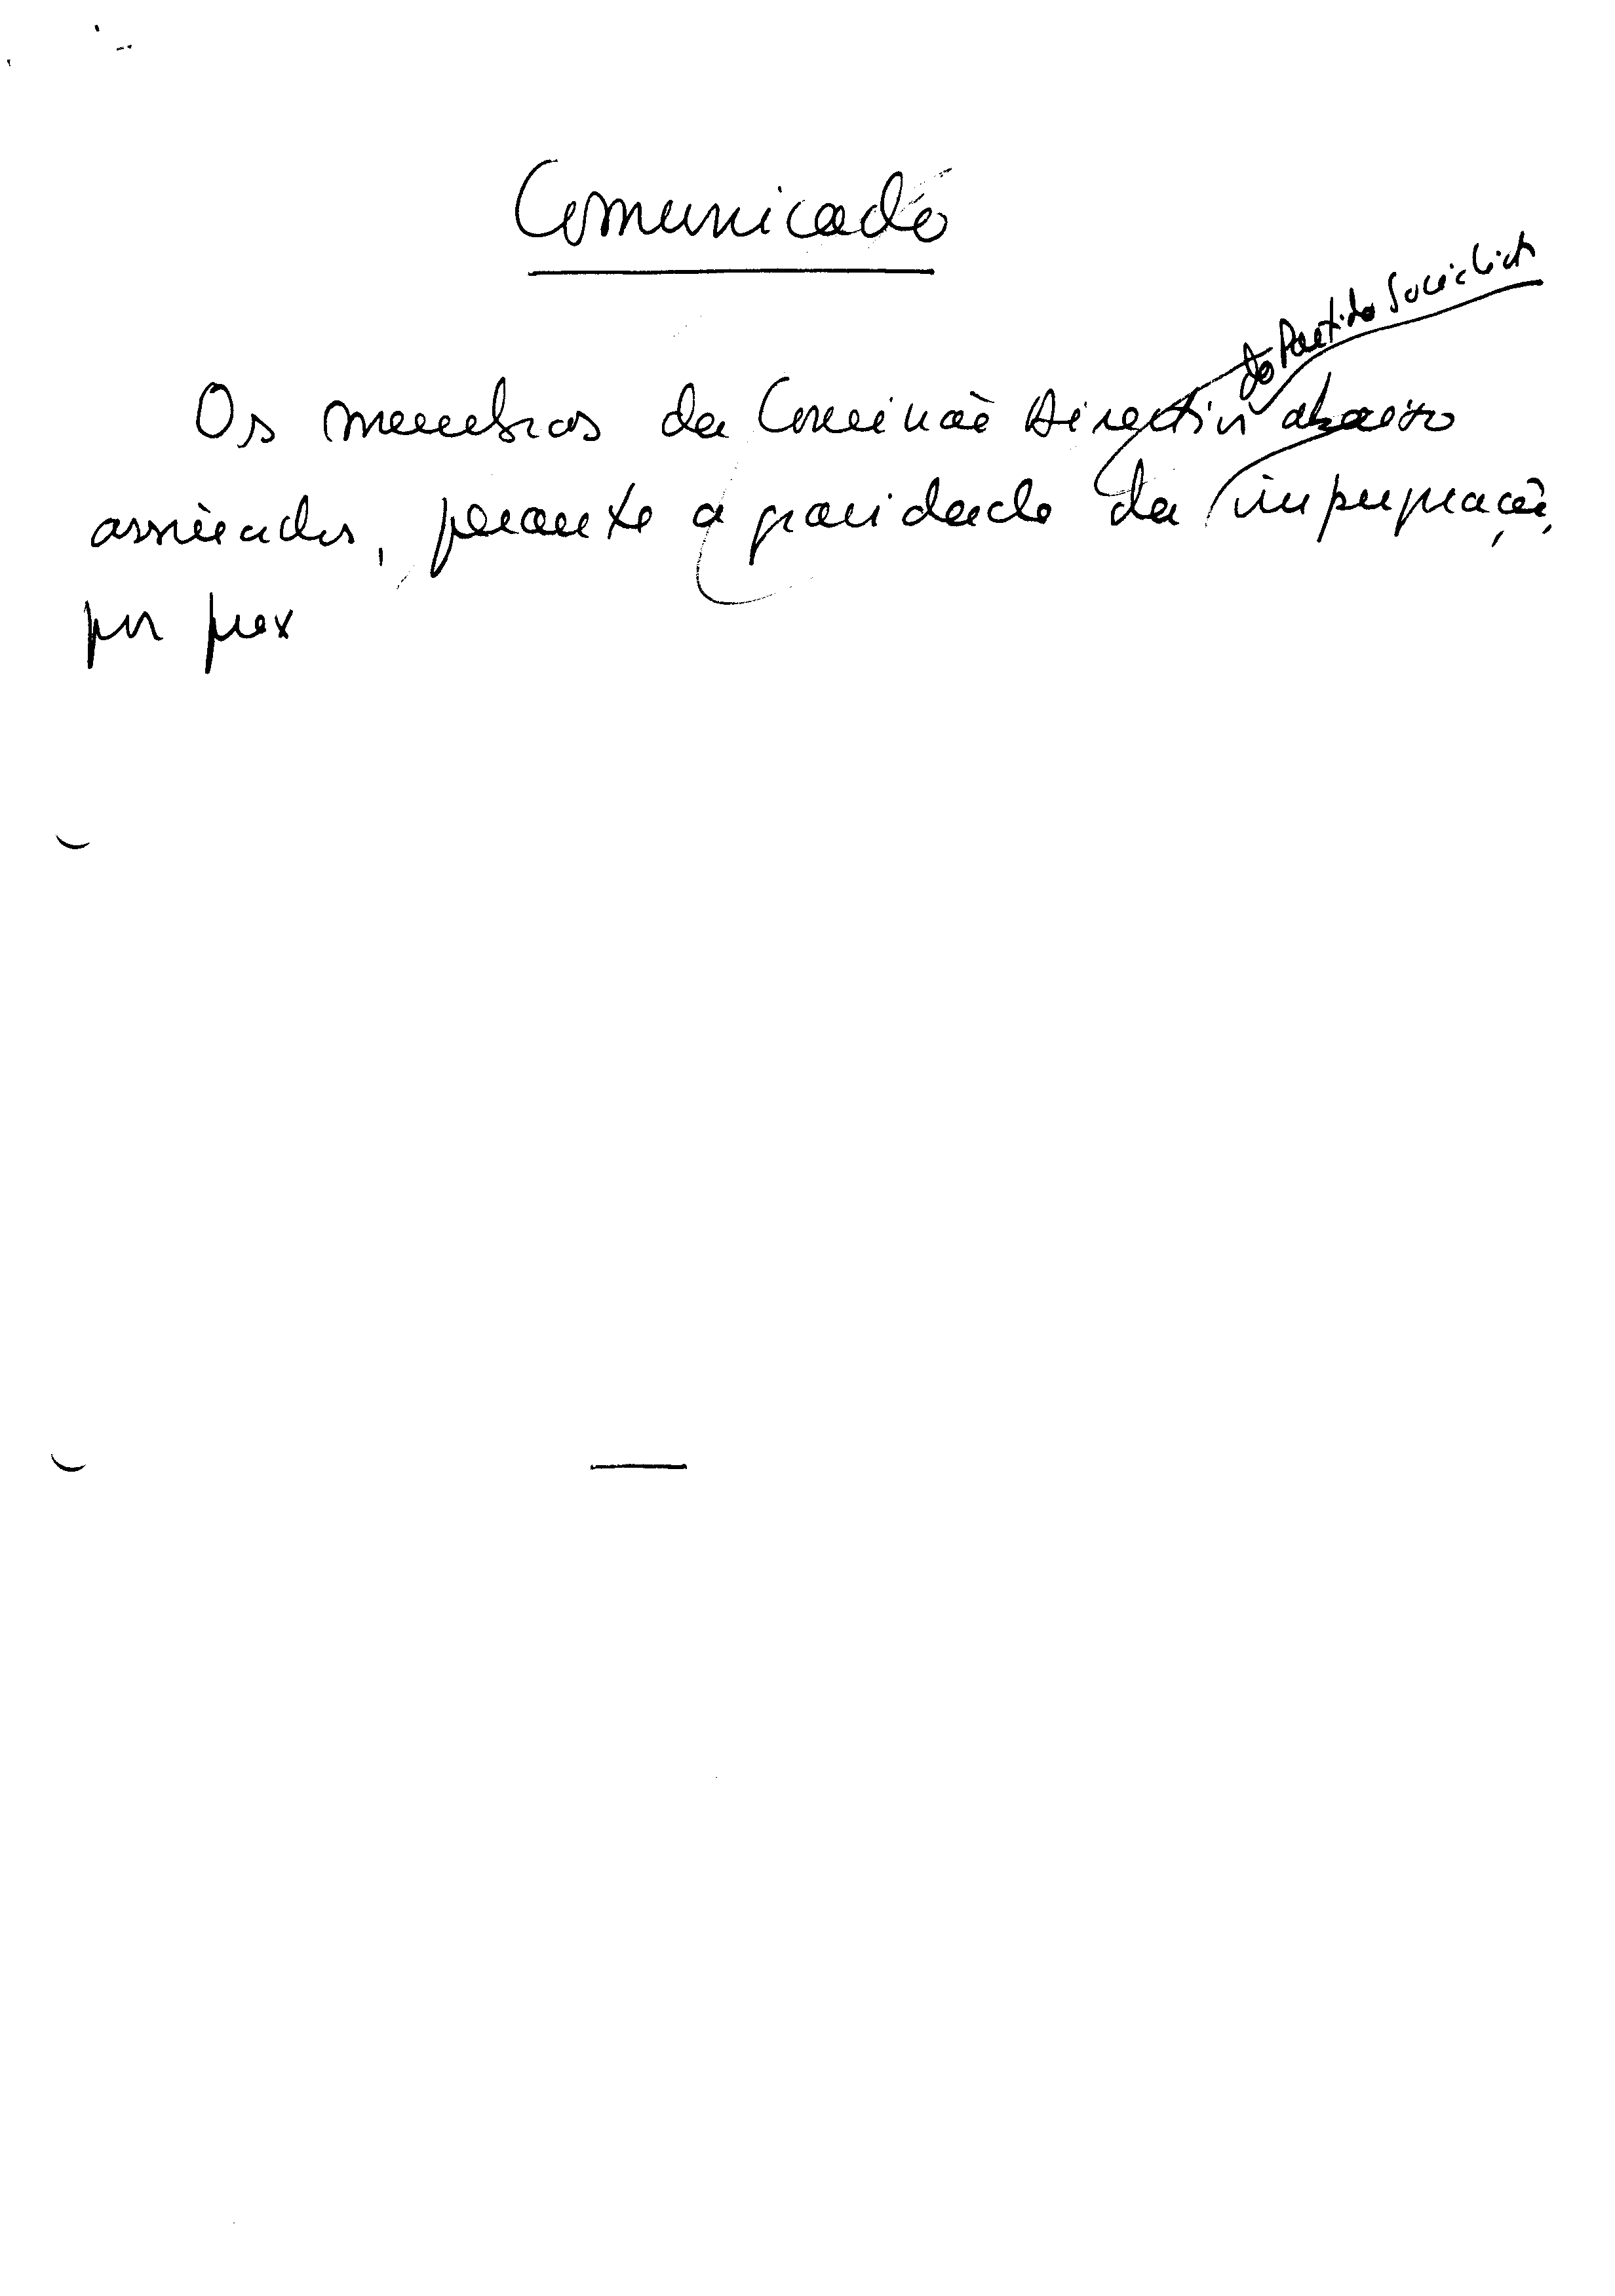 Comunicado
do Partido Socialista
Os membros da Comissão Directiva abaixo
assinados, perante a gravidade da impugnação,
por